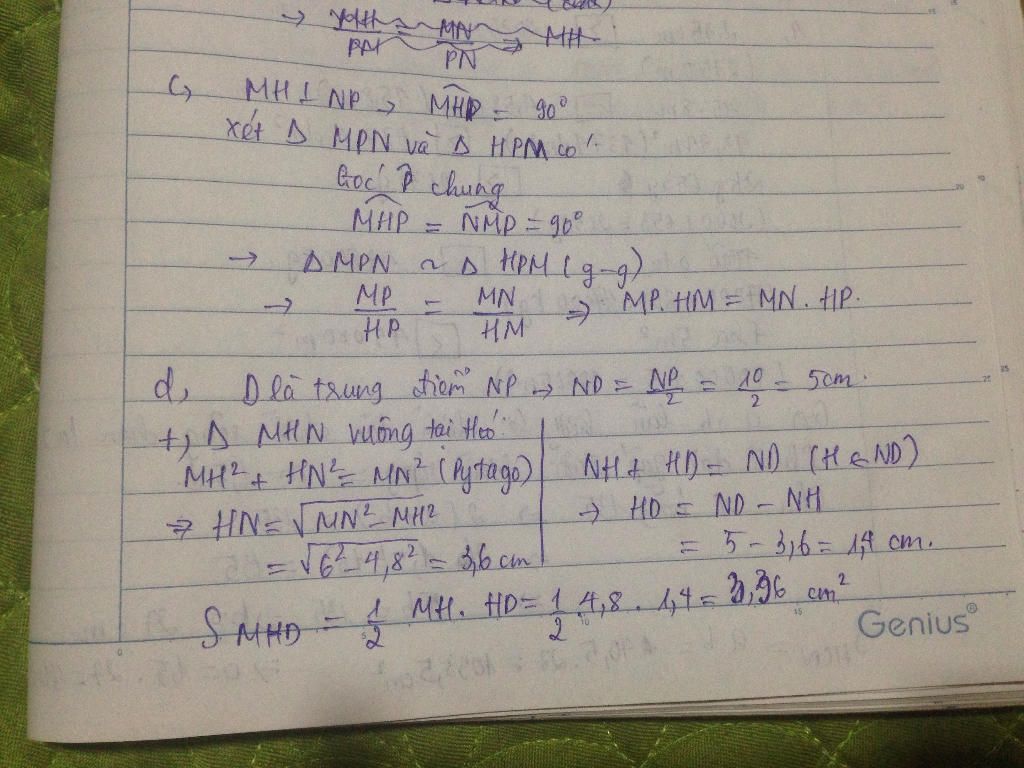 → MH/PM = MN/PN ⇒ MH
c, MH ⊥ NP → MHP = 90°
xét Δ MPN và Δ HPM có:
Góc P̂ chung
MHP = NMP = 90°
→ Δ MPN ~ Δ HPM (g-g)
→ MP/HP = MN/HM ⇒ MP.HM = MN.HP.
d, D là trung điểm NP → ND = NP/2 = 10/2 = 5cm.
+, Δ MHN vuông tại H có:
MH² + HN² = MN² (Pytago)
⇒ HN = √MN² - MH²
= √6² - 4,8² = 3,6 cm
NH + HD = ND (H ∈ ND)
→ HD = ND - NH
= 5 - 3,6 = 1,4 cm.
S MHD = 1/2 MH.HD = 1/2 4,8.1,4 = 3,36 cm²
Genius®